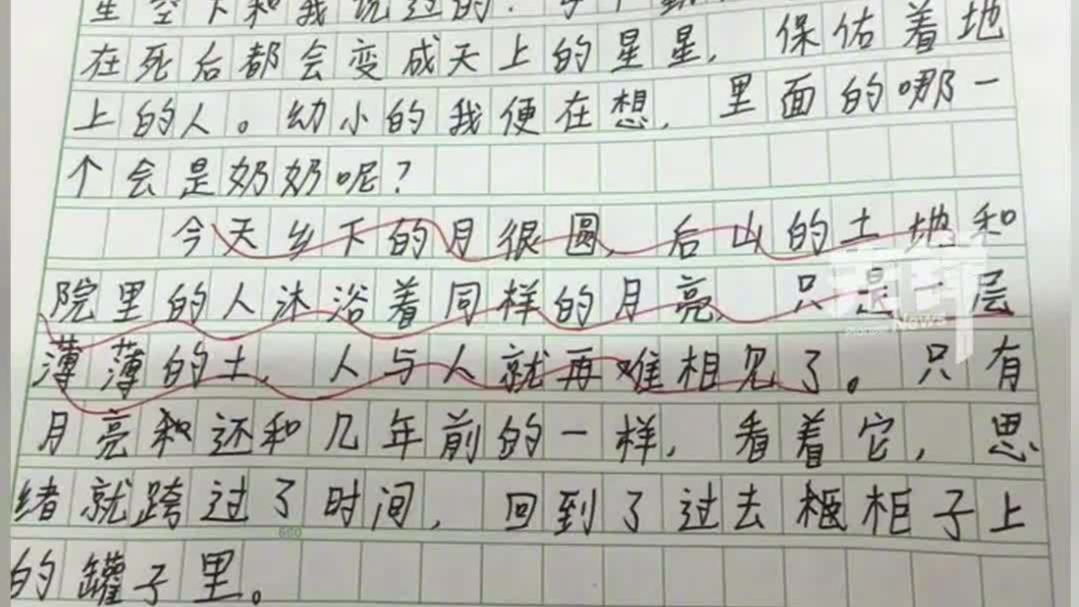 星空下和我说过的：
在死后都会变成天上的星星，保佑着地
上的人。幼小的我便在想，里面的哪一
个会是奶奶呢？
今天乡下的月很圆，后山的土地和
院里的人沐浴着同样的月亮，只是一层
薄薄的土，人与人就再难相见了。只有
月亮和还和几年前的一样，看着它，思
绪就跨过了时间，回到了过去柜柜子上
的罐子里。
600
News